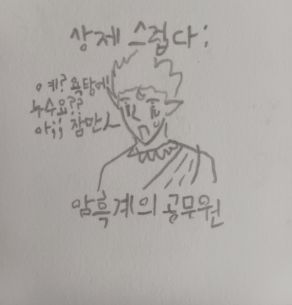 상제스럽다:
이예? 욕탕에
누수요??
아;; 잠만ㅅ
암흑계의 공무원